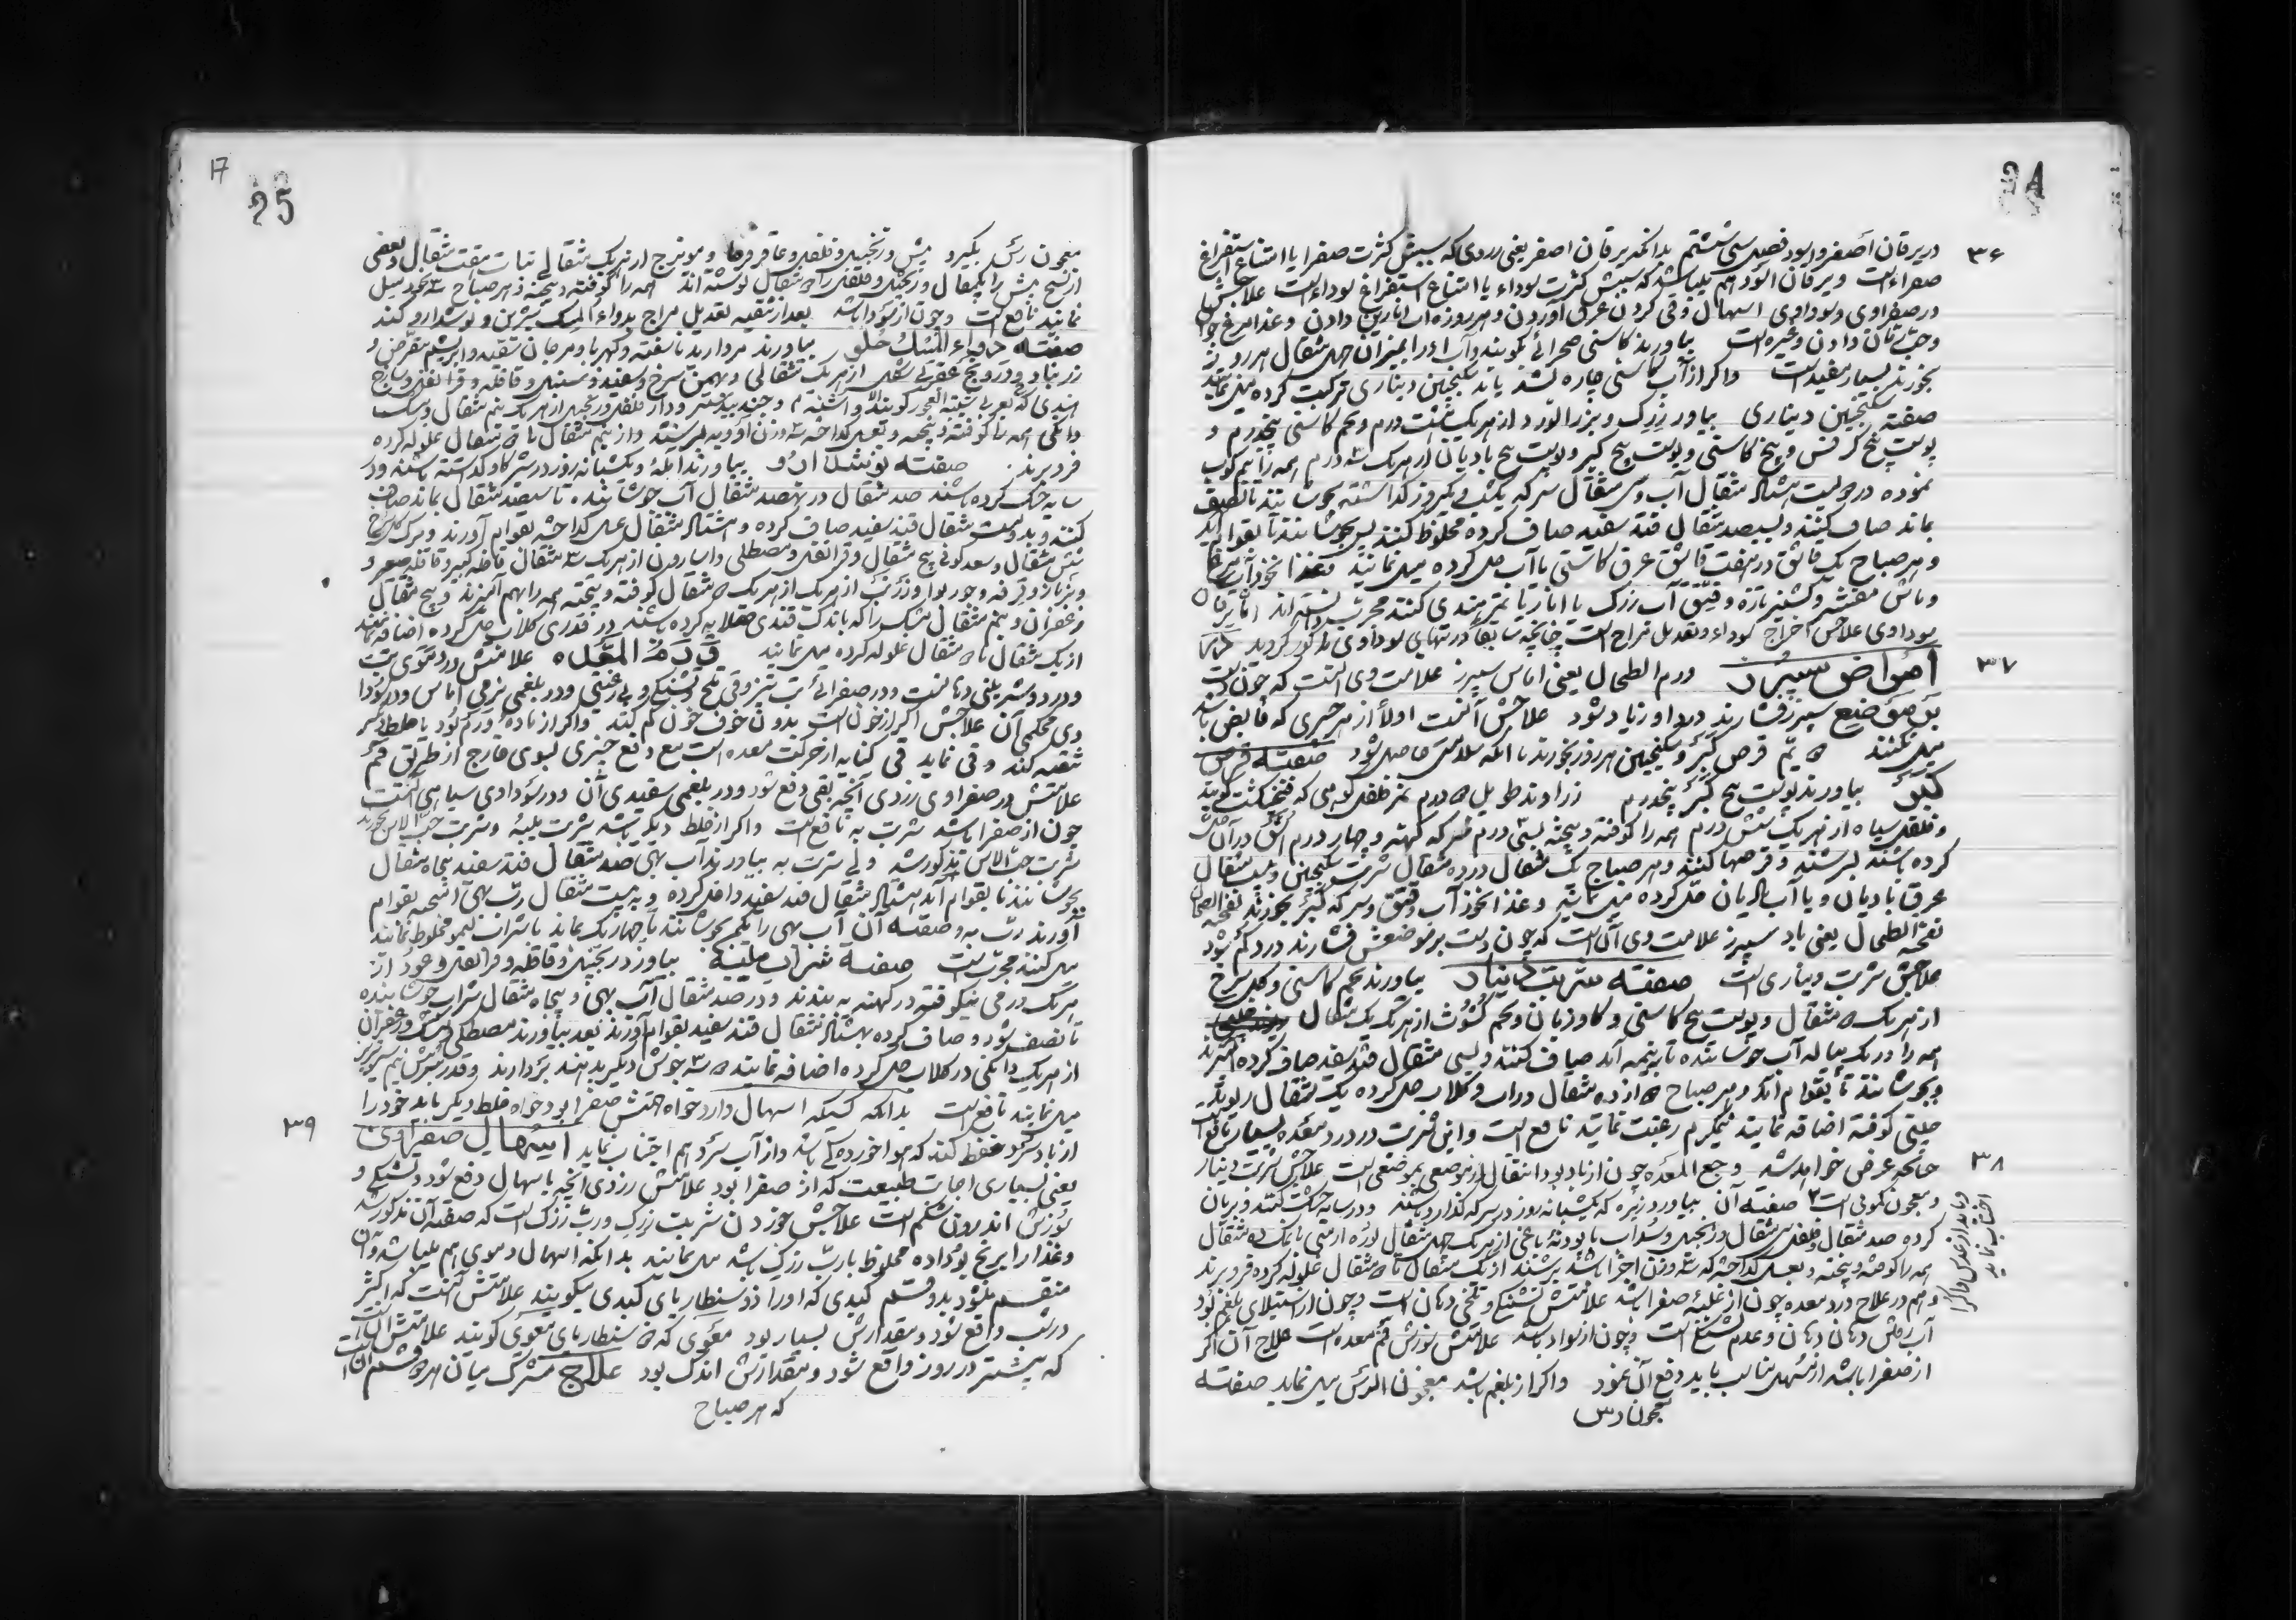 24
۳۶
در یرقان اصفر و اسود فصل سی ششم بدانکه یرقان اصفر یعنی زردی که سببش کثرت صفرا یا امتناع استفراغ
صفراءست و یرقان اسود هم میباشد که سببش کثرت سوداء یا امتناع استفراغ سوداءست علاجش
در صفراوی و سوداوی اسهال و قی کردن عرق آوردن و هر روزه آب انارین دادن و غذا مرغ جوان
دادن و غیره است بیاورند کاسنی صحرائی بکوبند و آب او را بمیزان چهل مثقال هر روز
بخورند بسیار مفیدست و اگر از آب کاسنی چاره نشد باید سکنجبین دیناری ترکیب کرده میل نمایند
صفته سکنجبین دیناری بیاور زرک و بزر الورد از هر یک هشت درم و تخم کاسنی پنجدرم و
پوست بیخ کرفس و بیخ کاسنی و پوست بیخ کبر و پوست بیخ بادیان از هر یک ۳ درم همه را نیم کوب
نموده در دویست هشتاد مثقال آب و سی مثقال سرکه یکشب و یکروز گذاشته بجوشانند تا نصف
بماند صاف کنند و بسیصد مثقال قند سفید صاف کرده مخلوط کنند پس بجوشانند تا بقوام آید
و هر صباح یک قاشق در هفت قاشق عرق کاسنی یا آب حل کرده میل نمایند و غذا نخودآب
و ماش مقشر و کشنیز تازه و قیق آب زرک یا انار یا تمر هندی کنند مجربست
سوداوی علاجش اخراج سوداء و تعدیل مزاج است چنانچه سابقا در تبهای سوداوی مذکور گردید
۳۷
امراض سپرز ورم الطحال یعنی اماس سپرز علامت وی آنست که چون دست
بر موضع سپرز فشارند درد او زیاد شود علاجش آنست اولا از هر چیزی که قابض باشد
میل نکنند قرص کبر و سکنجبین هر روز بخورند تا انکه سلامتی حاصل شود صفته قرص
کبر بیاورند پوست بیخ کبر پنجدرم زراوند طویل ۵ درم
و فلفل سیاه از هر یک شش درم همه را کوفته و بیخته بیست درم سرکه کهنه و چهار درم اشق در آن حل
کرده باشند بسرشند و قرصها کنند و هر صباح یک مثقال در ده مثقال شربت سکنجبین و بیست مثقال
عرق بادیان و یا آب بادیان حل کرده میل نمایند و غذا نخود آب و قیق و سرکه کبر بخورند نفخة الطحال
نفخة الطحال یعنی باد سپرز علامت وی آن است که چون دست بر موضعش فشارند درد کم شود
علاجش شربت دیناری است صفته شربت دینار بیاورند تخم کاسنی و گل سرخ
از هر یک ۵ مثقال و پوست بیخ کاسنی و گاو زبان و تخم کشوث از هر یک یک مثقال
همه را در یک پیاله آب جوشانیده تا به نیمه آید صاف کنند و بسی مثقال قند سفید صاف کرده
و بجوشانند تا بقوام آید و هر صباح ۵ از ده مثقال در آب و گلاب حل کرده یک مثقال ریوند
چینی کوفته اضافه نمایند رغبت نمایند نافع است و این شربت در درد معده بسیار نافع است
۳۸
چنانچه عرض خواهد شد وجع المعده چون از باد بود انتقال از موضعی بموضعی است علاجش شربت دینار
و معجون کمونی است صفته آن بیاورد زیره که یکشبانه روز در سرکه گذارده باشند و در سایه خشک کنند و بریان
کرده صد مثقال و فلفل سی مثقال و زنجبیل و سداب یا پودنهٔ باغی از هر یک چهل مثقال بوره ارمنی یا نمک ده مثقال
همه را کوفته و بیخته و بعسل گداخته که سه وزن اجزا باشد بسرشند از یک مثقال تا ۵ مثقال غلوله کرده فرو برند
و هم در علاج درد معده چون از غلبه صفرا باشد علامتش تشنگی و تلخی دهان است و چون از استیلای بلغم بود
آب رفتن دهان و عدم تشنگی است و چون از سوداء باشد علامتش سوزش فم معده است علاج آن اگر
از صفرا باشد از مسهل مناسب باید دفع آن نمود و اگر از بلغم باشد معجون الدرس میل نماید صفته
معجون رس
17
25
معجون رس بگیرد بیش و زنجبیل و فلفل و عاقرقرحا و مویزج از هر یک مثقال نبات هفت مثقال و بعضی
از نسخ بیش را یکمثقال و زنجبیل و فلفل را ۵ مثقال نوشته اند همه را کوفته و بیخته هر صباح میل
نمایند نافع است و چون از سوداء باشد بعد از تنقیه تعدیل مزاج بدواء المسک شیرین و نوشدارو کنند
صفته دواء المسک حلو بیاورند مروارید ناسفته و کهربا و مرجان و ابریشم مقرض و
زرنباد و درونج عقربی از هر یک مثقالی و بهمن سرخ و سفید و سنبل و قاقله و قرنفل و ساذج
هندی و اشنه و جندبیدستر و دار فلفل و زنجبیل از هر یک نیم مثقال و مشک
دانگی همه را کوفته و بیخته و بعسل گداخته ۳ وزن ادویه بسرشند و از نیم مثقال تا ۵ مثقال غلوله کرده
فرو برند. صفته نوشدارو بیاورند آمله و یکشبانه روز در شیر گاو گداشته باشند و در
سایه خشک کرده باشند صد مثقال در نهصد مثقال آب جوشانیده تا سیصد مثقال بماند صاف
کنند و بدویست مثقال قند سفید صاف کرده و هشتاد مثقال عسل گداخته بقوام آورند و برگ گل سرخ
شش مثقال و سعد کوفی پنج مثقال و قرنفل و مصطکی و اسارون از هر یک ۳ مثقال قاقله کبیر و قاقله صغیر و
بزباز و قرفه و جوز بوا و زرنب از هر یک ۵ مثقال کوفته و بیخته همه را بهم آمیزند و پنج مثقال
زعفران و نیم مثقال مشک را که باندک قندی صلایه کرده باشند در قدری گلاب حل کرده اضافه نمایند
از یک مثقال تا ۵ مثقال غلوله کرده میل نمایند ورم المعده علامتش در دموی تب
و درد و شیرینی دهانست و در صفرائی تب تیز و قی تلخ و تشنگی و بیرغبتی و در بلغمی نرمی اماس و در سودا
وی محکمی آن علاجش اگر از خون است بدون خوف خون کم کنند و اگر از ماده
تنقیه کند و قی نماید قی کنایه از حرکت معده است مع دفع چیزی بسوی خارج از طریق فم
علامتش در صفراوی زردی آنچه بقی دفع شود و در بلغمی سفیدی آن و در سوداوی سیاهی آنست
چون از صفرا باشد شربت به نافع است و اگر از خلط دیگر باشد شربت میبه و شربت حب الاس بخورند
شربت حب الاس مذکور شد ولی شربت به بیاورند آب بهی صد مثقال قند سفید پنجاه مثقال
بجوشانند تا بقوام آید هشتاد مثقال قند سفید داخل کرده و به بیست مثقال رب بهی آمیخته بقوام
آورند رب به و صفته آن آب بهی را بجوشانند تا چهار یک بماند با شراب لیمو مخلوط نمایند
میل کنند مجربست صفته شراب میبه بیاورد زنجبیل و قاقله و قرنفل و عود از
هر یک درمی نیکوفته در کهنه به بندند و در صد مثقال آب بهی و پنجاه مثقال شراب جوشانیده
تا نصف شود و صاف کرده بهشتاد مثقال قند سفید بقوام آورند بعد بیاورند مصطکی مشک و زعفران
از هر یک دانگی در گلاب حل کرده اضافه نمایند ۳ جوش دیگر بدهند بردارند
میل نمایند نافع است بدانکه کسیکه اسهال دارد خواه صفرا بود خواه خلط دیگر باید خود را
۳۹
از باد سرد حفظ کند که هوا خورده باشد و از آب سرد هم اجتناب نماید اسهال صفراوی
یعنی بسیاری اجابت طبیعت که از صفرا بود علامتش زردی آنچه باسهال دفع شود و تشنگی و
سوزش اندرون شکم است علاجش خوردن شربت زرک و رب زرک است که صفته آن مذکور شد
و غذا را برنج بوداده مخلوط با رب زرک باشد میل نمایند بدانکه اسهال دموی هم میباشد و آن
منقسم میشود بدو قسم کبدی که او را ذوسنطاریای کبدی میگویند علامتش آنست که اکثر
در شب واقع شود و مقدارش بسیار بود معوی که ذوسنطاریای معوی گویند علامتش آنست
که بیشتر در روز واقع شود و مقدارش اندک بود علاج مشترک میان هر دو قسم آن است
که هر صباح